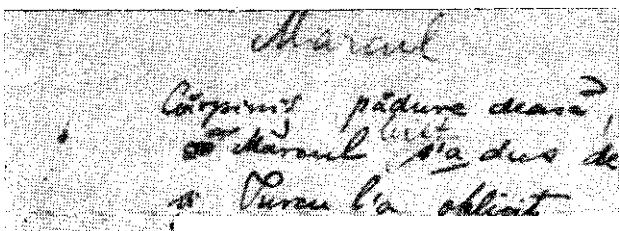 Marcul
Cărpiniș pădure deasă,
Marcul s'a dus de
Turcu l'a obligat